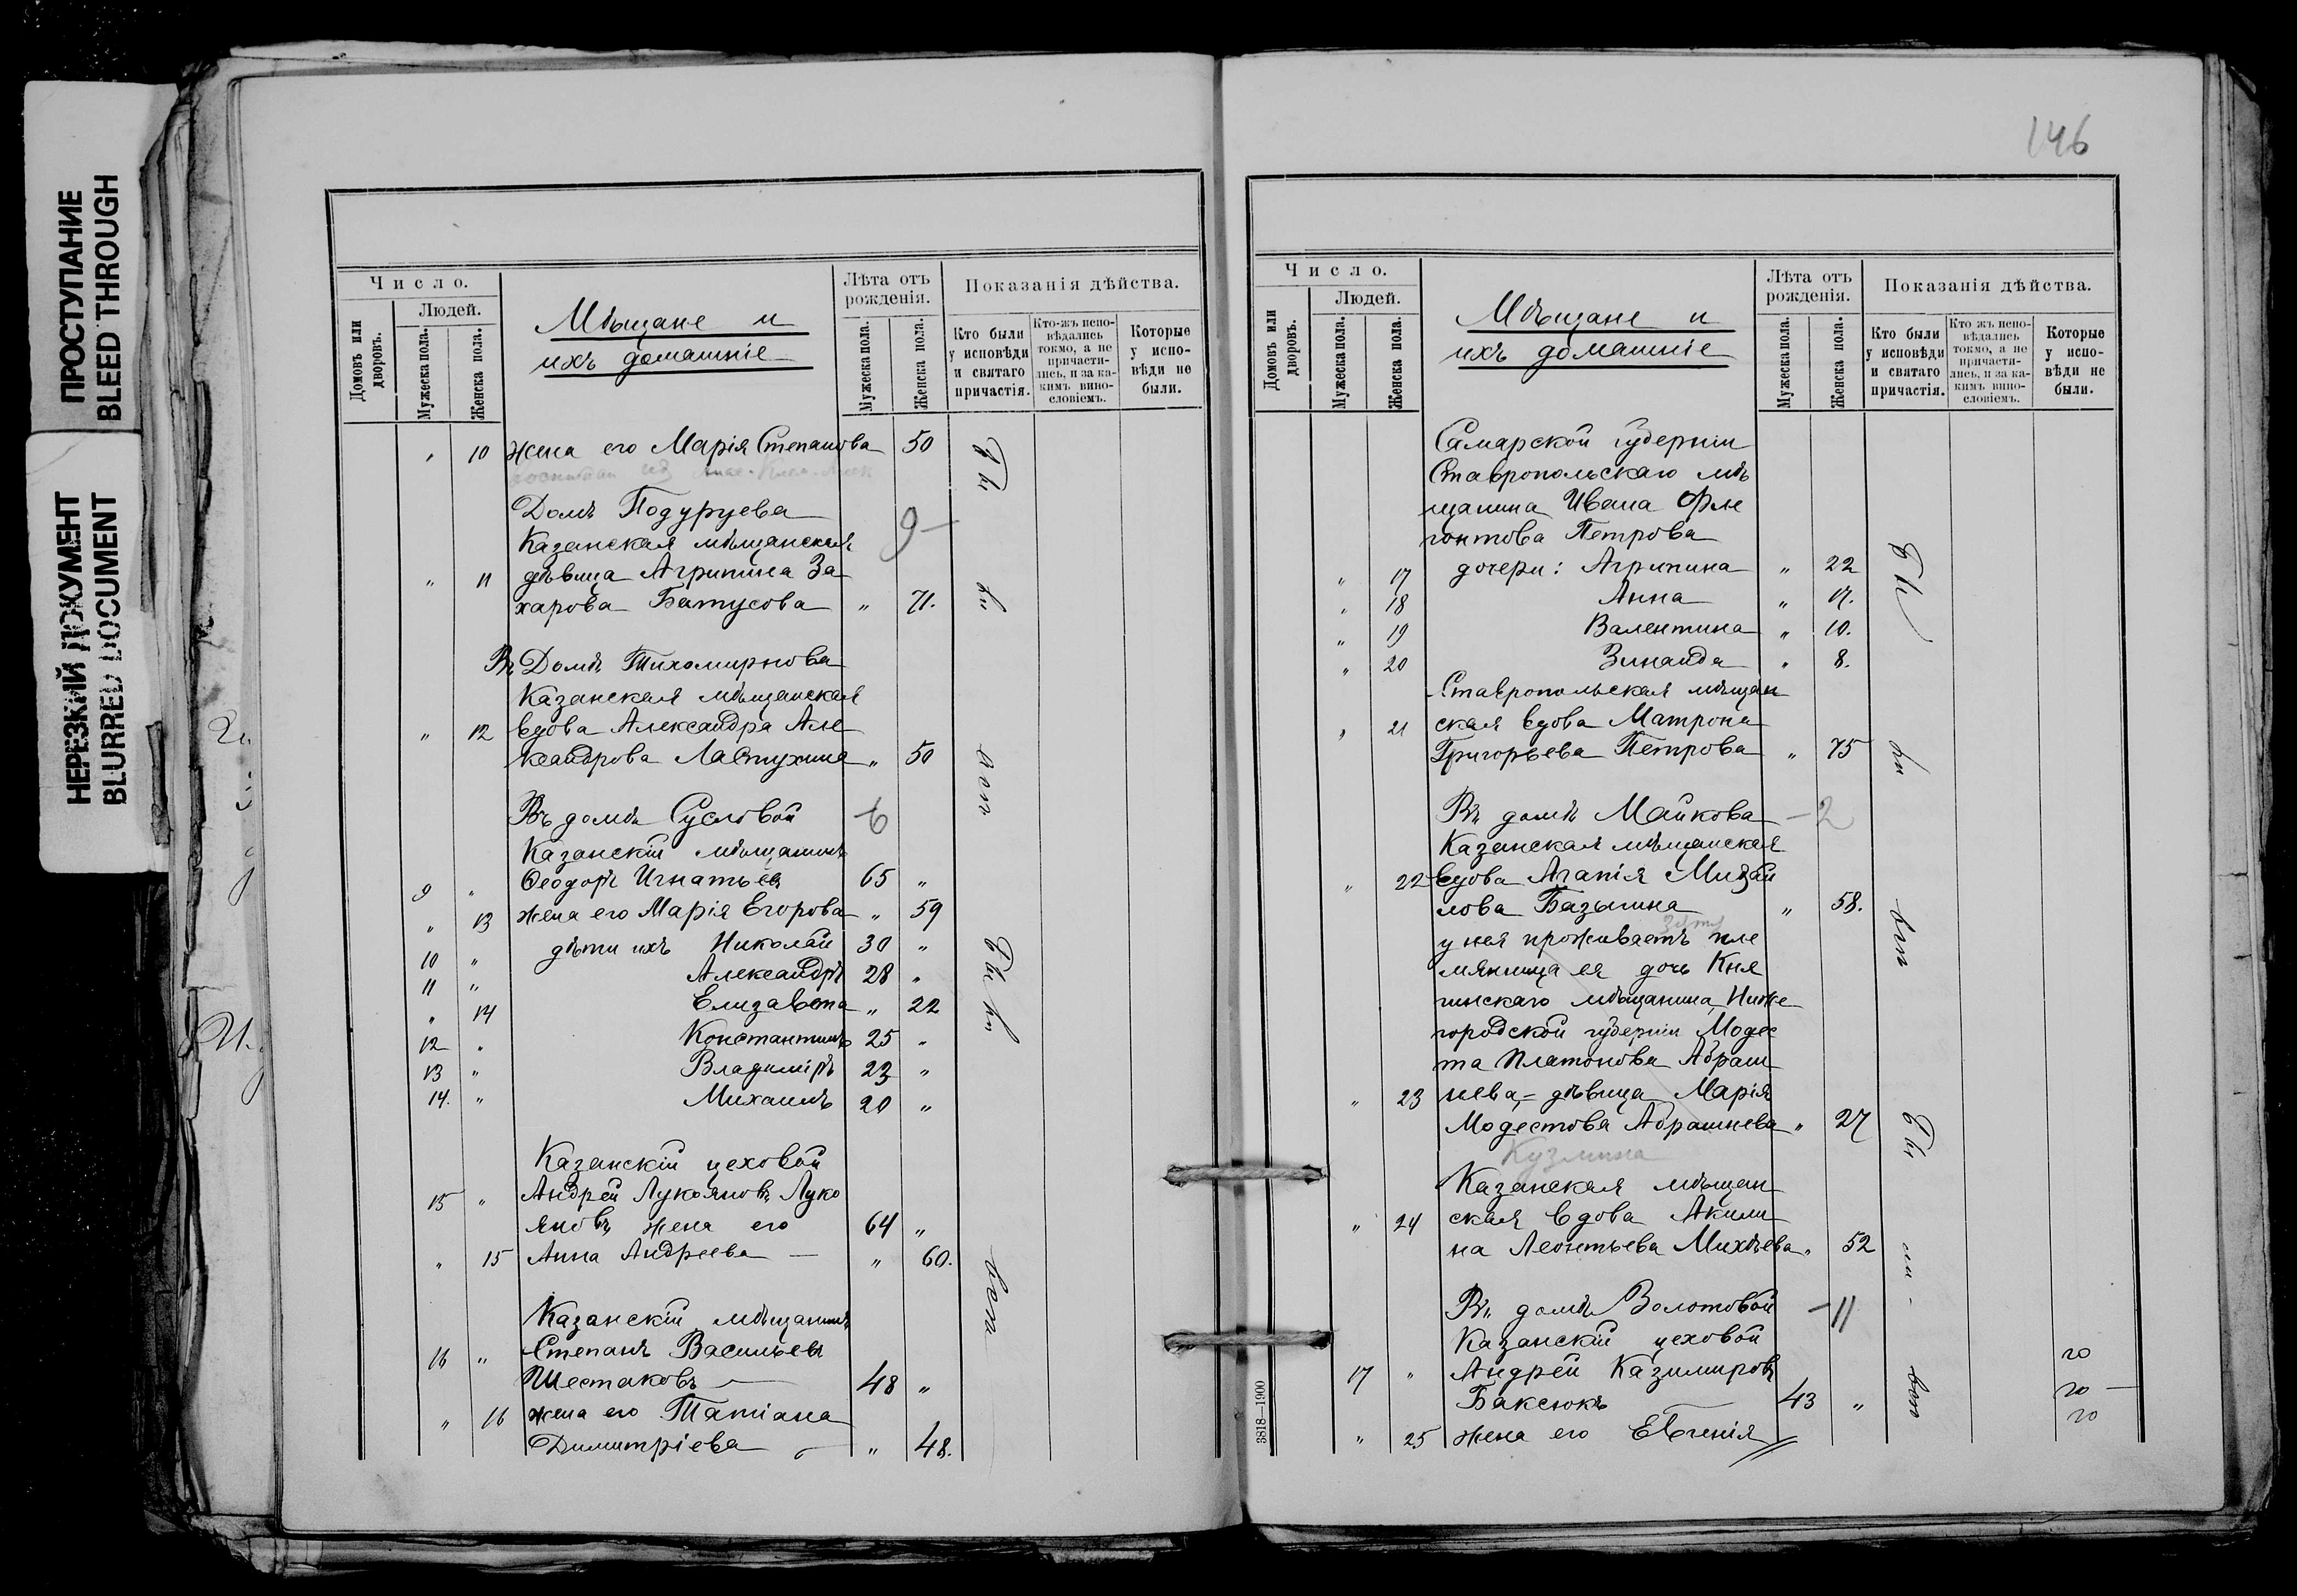 ПРОСТУПАНИЕ
BLEED THROUGH
НЕРЕЗКИЙ ДОКУМЕНТ
BLURRED DOCUMENT
Число.
Домовъ или дворовъ.
Людей.
Мужеска пола.
Женска пола.
Мѣщане и
ихъ домашніе
Лѣта отъ рожденія.
Мужеска пола.
Женска пола.
Показанія дѣйства.
Кто были у исповѣди и святаго причастія.
Кто-жъ испо-вѣдались токмо, а не причасти-лись, и за ка-кимъ вино-словіемъ.
Которые у испо-вѣди не были.
" 10 жена его Марія Степанова 50
Домъ Подуруева 9
Казанская мѣщанская
" 11 дѣвица Агрипина За
харова Батусова " 71.
Въ Домѣ Тихомирнова
Казанская мѣщанская
" 12 вдова Александра Але
ксандрова Ластухина " 50
Въ домѣ Сусловой 6
Казанскій мѣщанинъ
9 " Ѳеодоръ Игнатьевъ 65 "
" 13 жена его Марія Егорова " 59
10 " дѣти ихъ Николай 30 "
11 " Александръ 28 "
" 14 Елизавета " 22
12 " Константинъ 25 "
13 " Владиміръ 23 "
14. " Михаилъ 20 "
Казанскій цеховой
15 " Андрей Лукояновъ Луко
яновъ жена его 64 "
" 15 Анна Андреева — " 60.
Казанскій мѣщанинъ
16 " Степанъ Васильевъ
Шестаковъ 48 "
" 16 жена его Татіана
Димитріева " 48.
146
Число.
Домовъ или дворовъ.
Людей.
Мужеска пола.
Женска пола.
Мѣщане и
ихъ домашніе
Лѣта отъ рожденія.
Мужеска пола.
Женска пола.
Показанія дѣйства.
Кто были у исповѣди и святаго причастія.
Кто жъ испо-вѣдались токмо, а не причасти-лись, и за ка-кимъ вино-словіемъ.
Которые у испо-вѣди не были.
Самарской губерніи
Ставропольскаго мѣ
щанина Ивана Фле
гонтова Петрова
" 17 дочери: Агрипина " 22
" 18 Анна "
" 19 Валентина " 10.
" 20 Зинаида " 8.
Ставропольская мѣщан
" 21 ская вдова Матрона
Григорьева Петрова " 75
Въ домѣ Майкова — 2
Казанская мѣщанская
" 22 вдова Агапія Михай
лова Базыгина " 58.
у нея проживаетъ пле
мянница ея дочь Кня
гинскаго мѣщанина, Ниже
городской губерніи Модес
та Платонова Абраш
" 23 нева, — дѣвица Марія
Модестова Абрашнева " 27
Кузмина
Казанская мѣщан
" 24 ская вдова Акили
на Леонтьева Михѣева " 52
Въ домѣ Золотовой — 11
Казанскій цеховой
17 " Андрей Казимировъ
Баксюкъ 43 "
" 25 жена его Евгенія
3818—1900